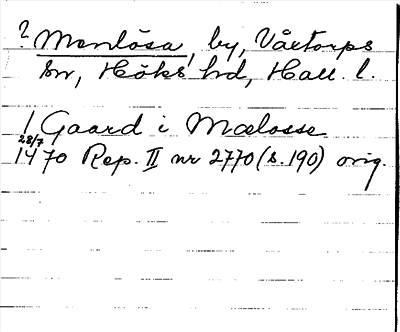 ? Menlösa, by, Våxtorps
sn, Höks hd, Hall. l.
1 Gaard i Mælosse
28/7
1470 Rep. II nr 2770 (s. 190) orig.